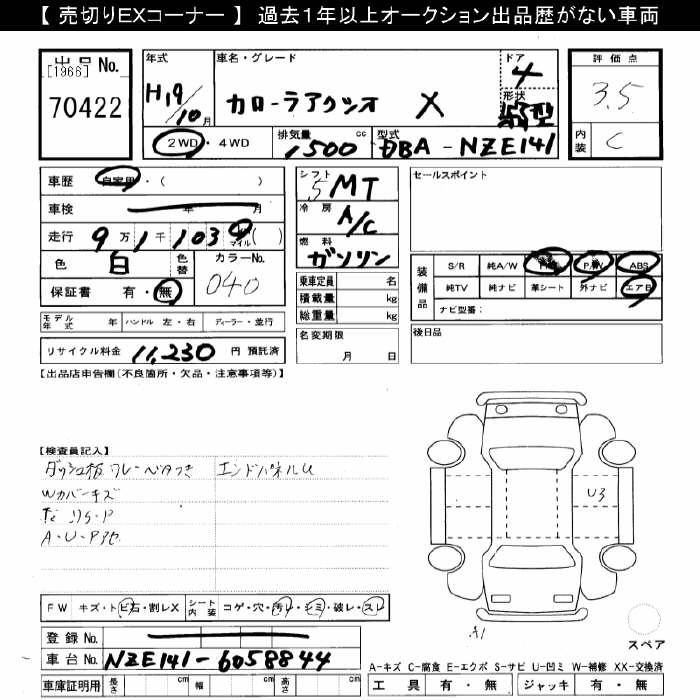 【 売切りEXコーナー 】 過去1年以上オークション出品歴がない車両
出品 No.
[1966]
70422
年式
H19/10月
車名・グレード
カローラアクシオ X
ドア
4
形状
評価点
3.5
内装 C
2WD・4WD
排気量 cc
1500
型式
DBA-NZE141
車歴 自家用・( )
車検 年 月
走行 9万1千103 マイル( )
色 白 色替
カラーNo.
040
保証書 有・無
シフト
5MT
冷房
A/C
燃料
ガソリン
乗車定員 名
積載量 kg
総重量 kg
セールスポイント
装備品
S/R 純A/W P/S P/W ABS
純TV 純ナビ 革シート 外ナビ エアB
ナビ型番:
モデル年式 年 ハンドル 左・右 ディーラー・並行
リサイクル料金 11,230 円 預託済
名変期限
月 日
後日品
【出品店申告欄(不良箇所・欠品・注意事項等)】
【検査員記入】
エンドパネルU
Wカバーキズ
A・U・P
U3
A1
FW キズ・トビ石・割レX シート内装 コゲ・穴・汚レ・シミ・破レ・スレ
登録 No.
車台 No. NZE141-6058844
スペア
A-キズ C-腐食 E-エクボ S-サビ U-凹ミ W-補修 XX-交換済
車庫証明用 長さ cm 幅 cm 高さ cm
工具 有・無 ジャッキ 有・無